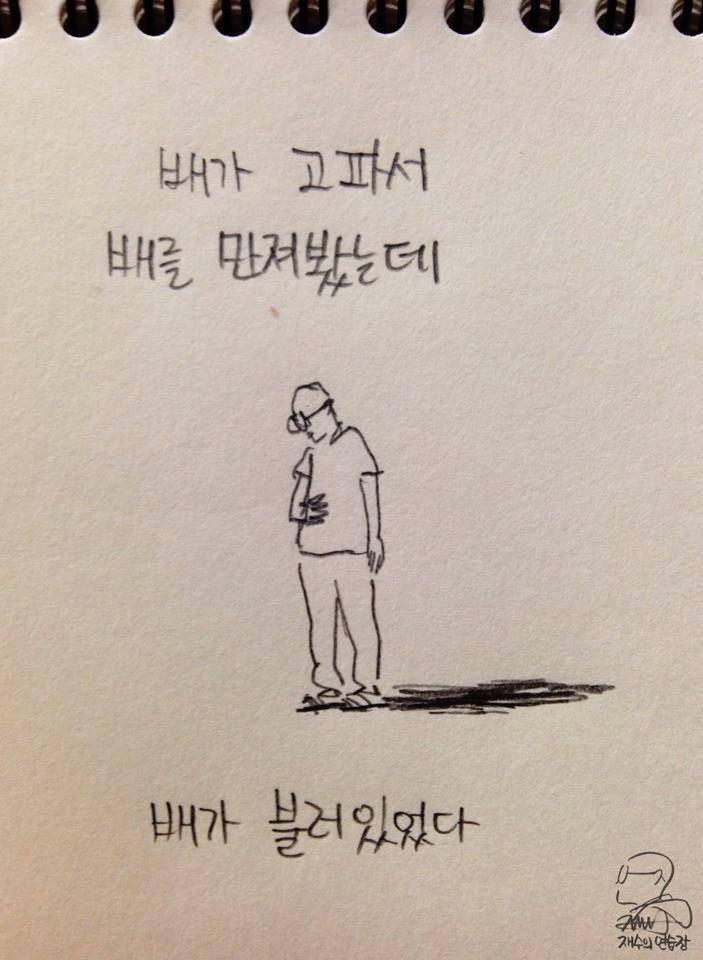 배가 고파서
배를 만져봤는데
배가 불러있었다
재수의 연습장